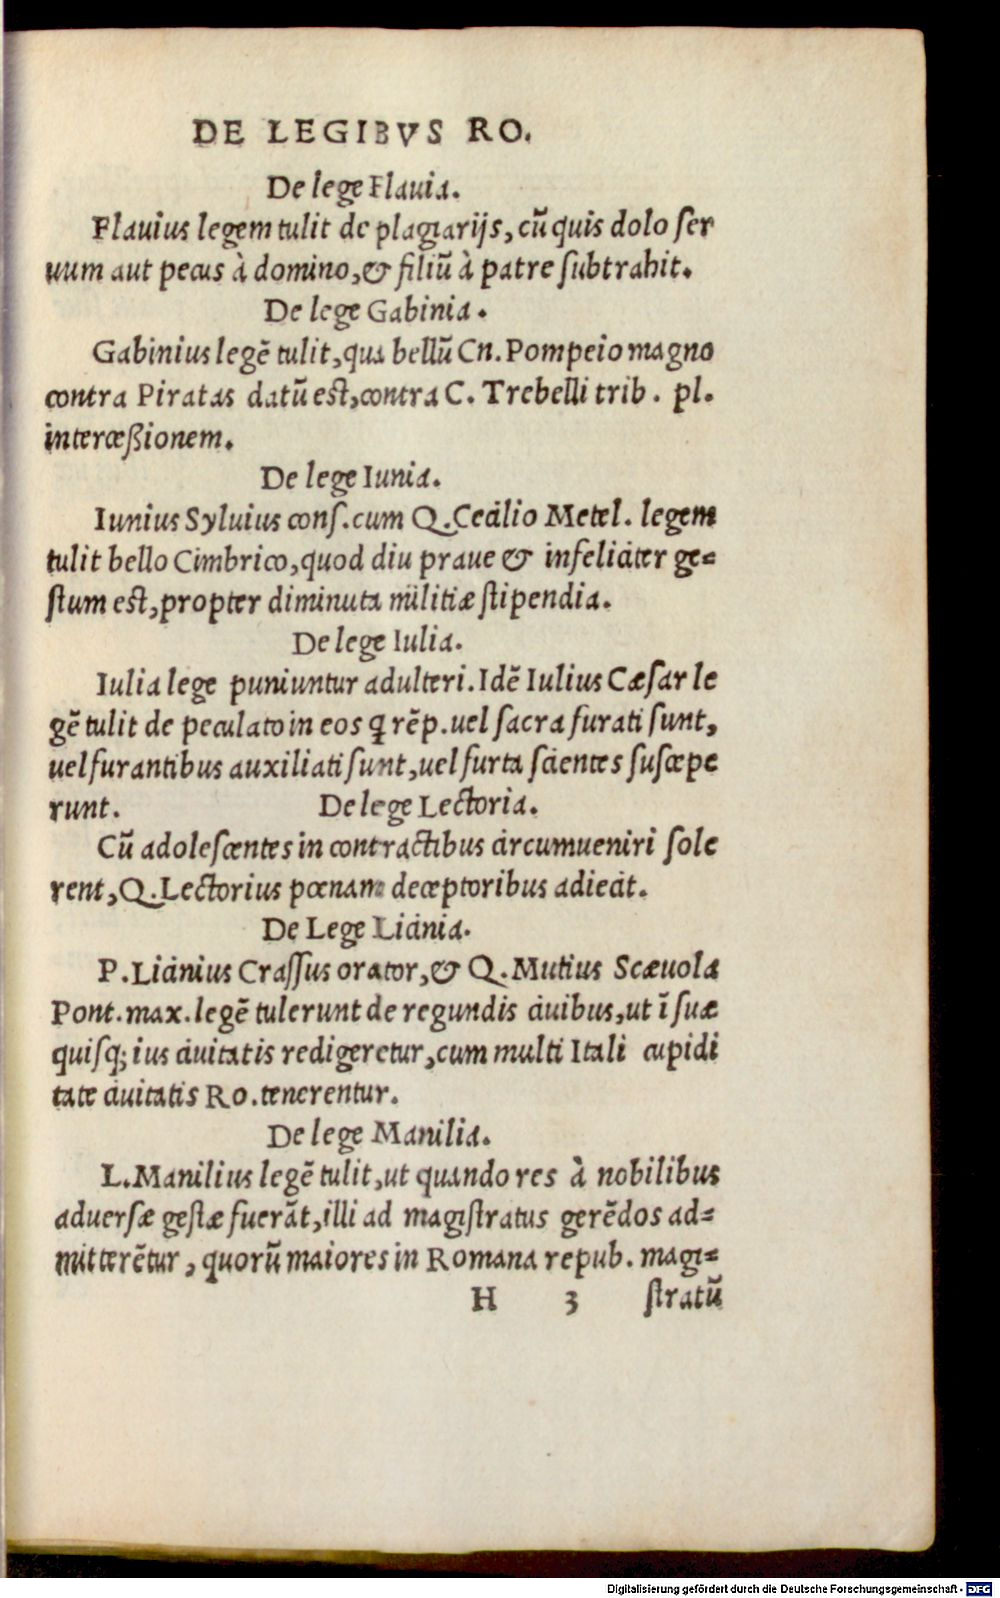 DE LEGIBVS RO.
De lege Flauia.
Flauius legem tulit de plagiarijs, cũ quis dolo ſer
uum aut pecus à domino, & filiũ à patre ſubtrahit.
De lege Gabinia.
Gabinius legẽ tulit, qua bellũ Cn. Pompeio magno
contra Piratas datũ est, contra C. Trebelli trib. pl.
interceßionem.
De lege Iunia.
Iunius Syluius conſ. cum Q. Cecilio Metel. legem
tulit bello Cimbrico, quod diu praue & infeliciter ge-
ſtum est, propter diminuta militiæ ſtipendia.
De lege Iulia.
Iulia lege puniuntur adulteri. Idẽ Iulius Cæſar le
gẽ tulit de peculato in eos q̃ rẽp. uel ſacra furati ſunt,
uel furantibus auxiliati ſunt, uel furta ſcientes ſuſcepe
runt. De lege Lectoria.
Cũ adoleſcentes in contractibus circumueniri ſole
rent, Q. Lectorius pœnam deceptoribus adiecit.
De Lege Licinia.
P. Licinius Craſſus orator, & Q. Mutius Scæuola
Pont. max. legẽ tulerunt de regundis ciuibus, ut ĩ ſuæ
quiſq; ius ciuitatis redigeretur, cum multi Itali cupidi
tate ciuitatis Ro. tenerentur.
De lege Manilia.
L. Manilius legẽ tulit, ut quando res à nobilibus
aduerſæ geſtæ fuerãt, illi ad magiſtratus gerẽdos ad-
mitterẽtur, quorũ maiores in Romana repub. magi-
H 3 ſtratũ
Digitalisierung gefördert durch die Deutsche Forschungsgemeinschaft - DFG